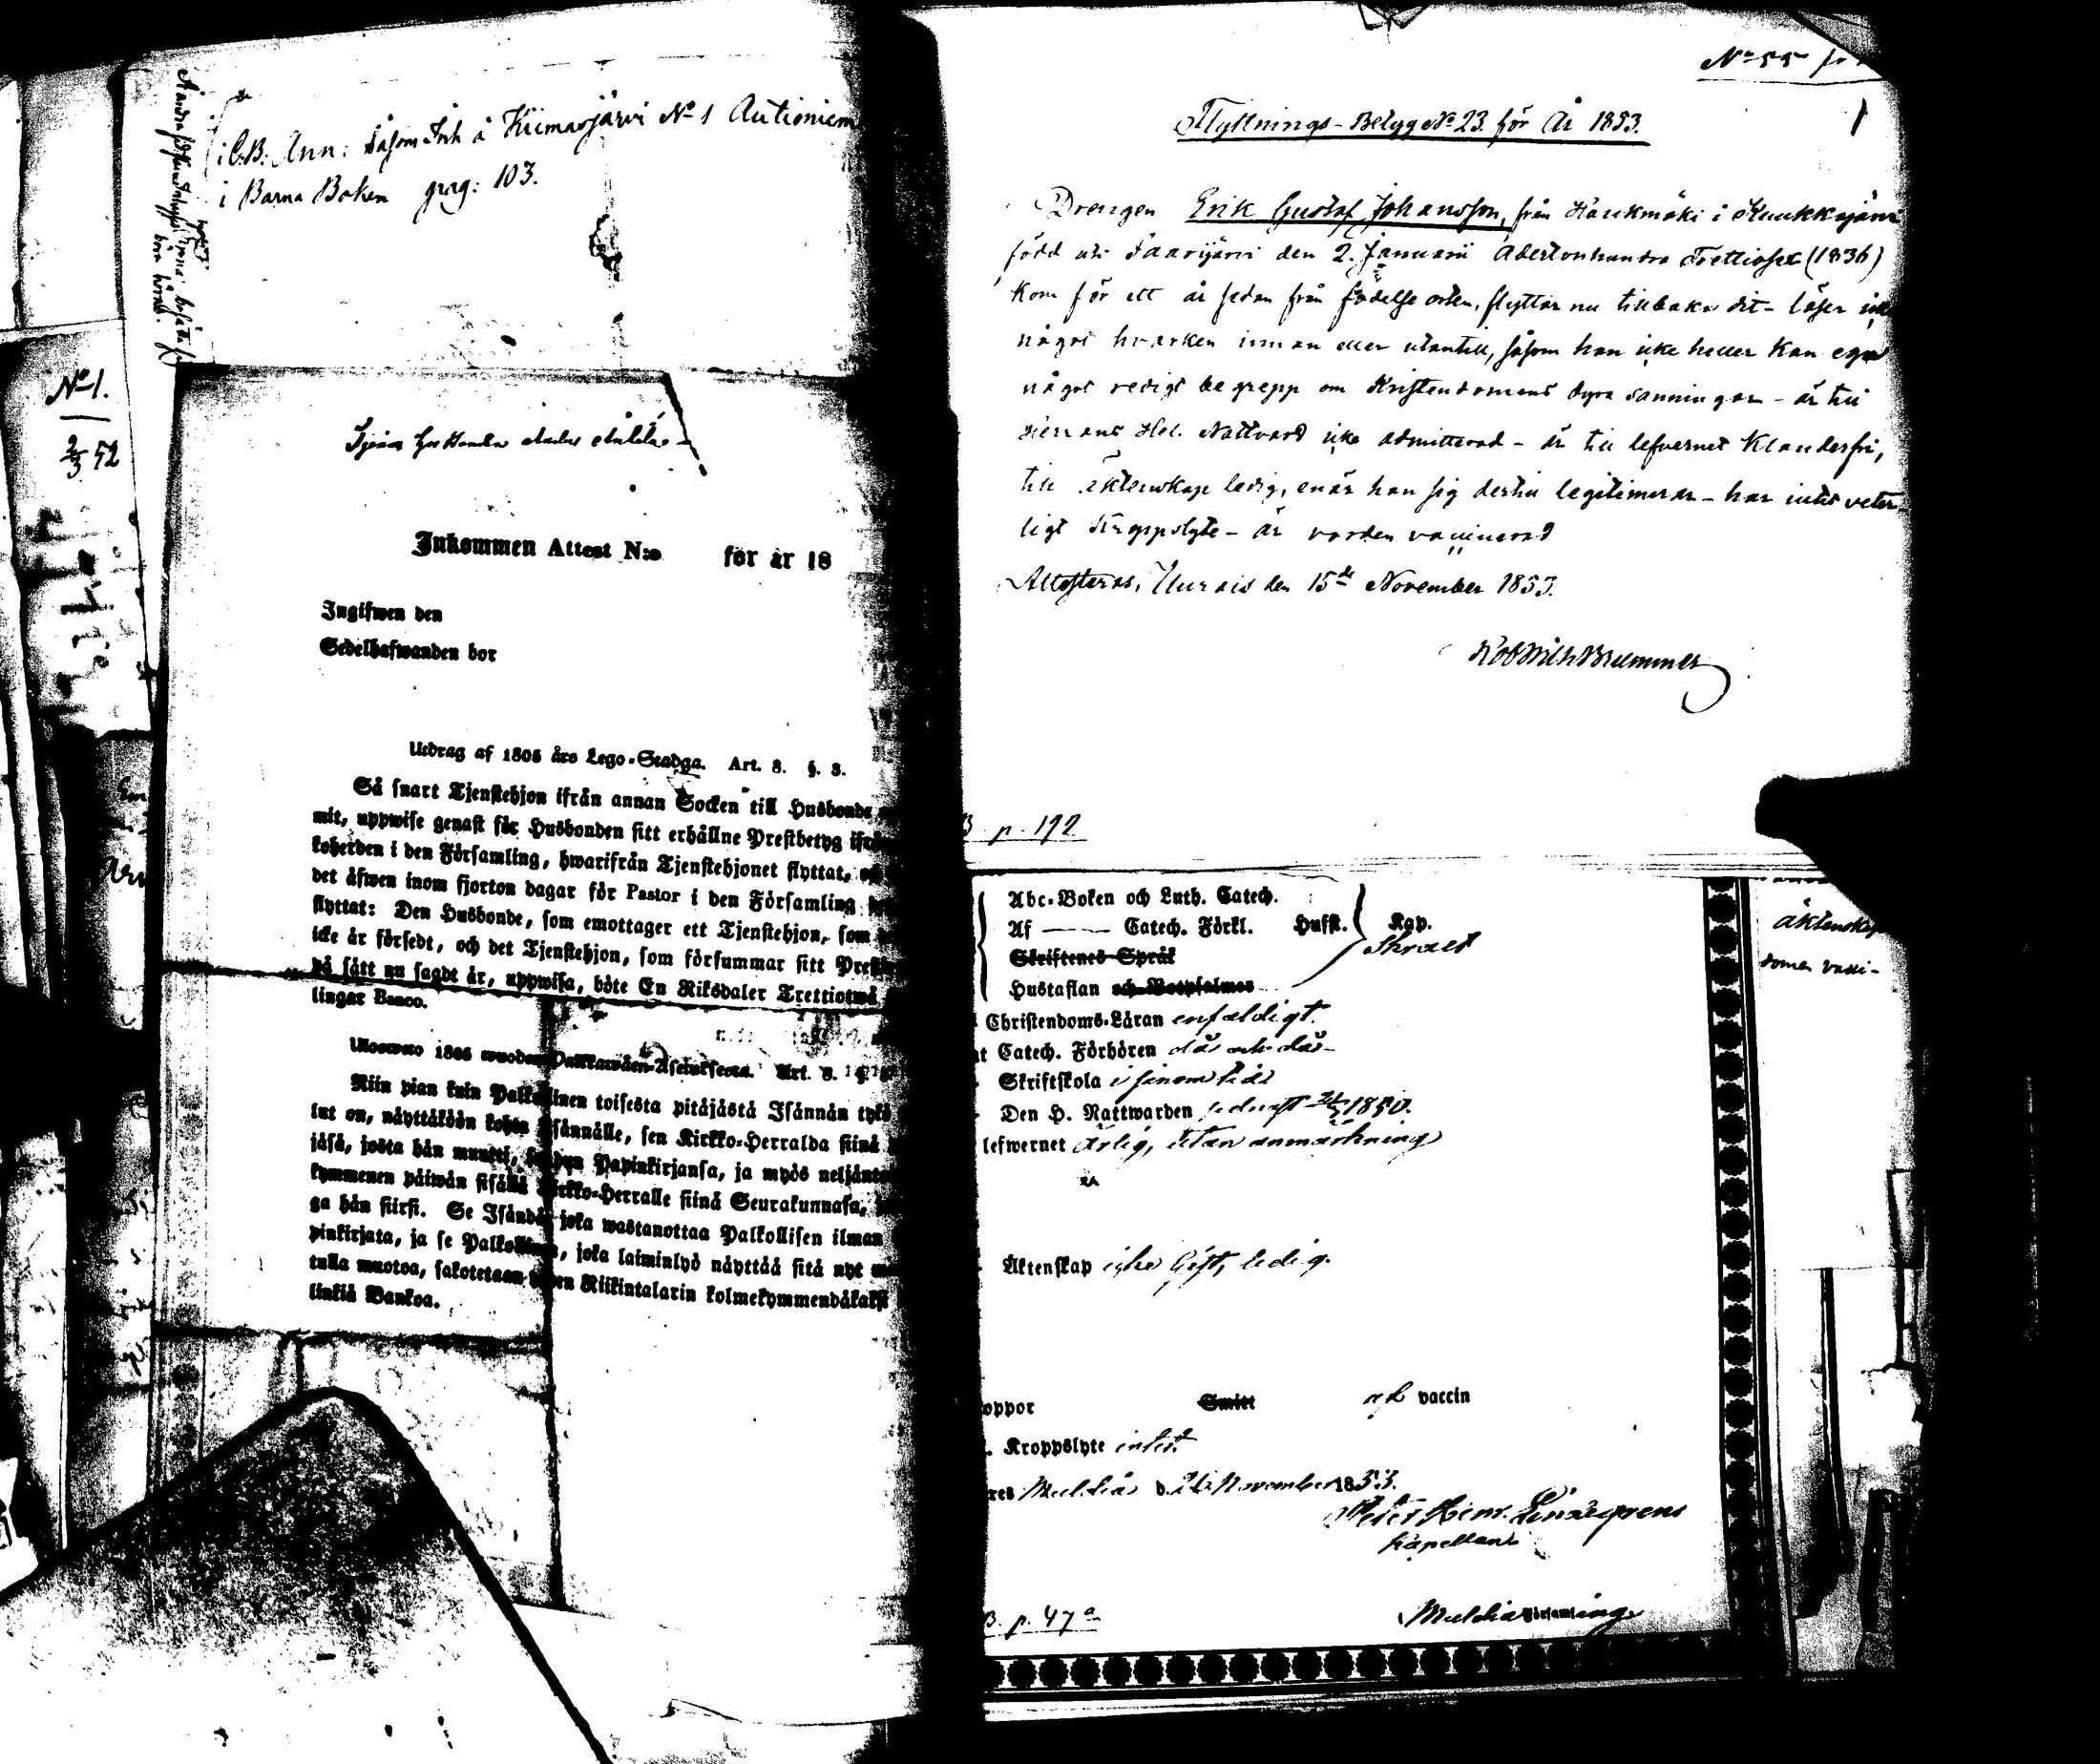 i C.B. Ann: Såsom Inh å Kiimasjärvi No 1 Autioniem
i Barna Boken pag: 103.
No 1.
2/3 52
Inkommen Attest N:o för år 18
Ingifwen den
Sedelhafwanden bor
Utdrag af 1805 års Lego-Stadga. Art. 8. §. 3.
Så snart Tjenstehjon ifrån annan Socken till Husbonde
mit, uppwise genast för Husbonden sitt erhållne Prestbetyg ifrå
koherden i den Församling, hwarifrån Tjenstehjonet flyttat,
det äfwen inom fjorton dagar för Pastor i den Församling
flyttat: Den Husbonde, som emottager ett Tjenstehjon, som
icke är försedt, och det Tjenstehjon, som försummar sitt Prest
på sätt nu sagdt är, uppwisa, böte En Riksdaler Trettiotwå
lingar Banco.
1805 wuoden Palkkawäen-Asetuksesta. Art. 8.
Niin pian kuin Palkollinen toisesta pitäjästä Isännän tykö
lut on, näyttäköön kohta Isännälle, sen Kirkko-Herralda siinä
jäsä, josta hän muutti, Papinkirjansa, ja myös neljänto
kymmenen päiwän sisällä Kirkko-Herralle siinä Seurakunnasa,
ga hän siirsi. Se Isändä, joka wastanottaa Palkollisen ilman
pinkirjata, ja se Palkollinen, joka laiminlyö näyttää sitä nyt
tulla muotoa, sakotetaan yhden Riikintalarin kolmekymmendäkaksi
linkiä Bankoa.
No 55
Flyttnings-Betyg No 23. för År 1853.
Drengen Erik Gustaf Johansson, från Haukmäki i Kuukkajärvi
född uti Saarijärvi den 2. Januarii Adertonhundra Trettiosex (1836)
kom för ett år sedan från födelse orten, flyttar nu tillbaka dit - läser
något hvarken innan eller utantill, såsom han icke heller kan ega
något redigt begrepp om Kristendomens dyra sanningar - är till
Herrans Hel. Nattvard icke admitterad - är till lefvernet klanderfri,
till äktenskap ledig, enär han sig dertill legitimerar - har intet veter
ligt kroppslyte - är vorden vaccinerad
Attesteras, Uurais den 15de November 1853.
Brummer
B. p. 192
Abc-Boken och Luth. Catech.
Af Catech. Förkl. Husfl. Kap.
Skriftenes Språk
Hustaflan och Botpsalmer
Christendoms-Läran enfaldigt.
t Catech. Förhören då och då
Skriftskola i sinom tid
Den H. Nattwarden sednast 1850.
lefwernet ärlig, utan anmärkning
Äktenskap icke Gift, ledig.
oppor Smitt vaccin
Kroppslyte intet.
res Muldia d. November 1853.
Peter Henr. Lindegrens
Kapellan
B. p. 47 a
Muldia Församling
äktenskap